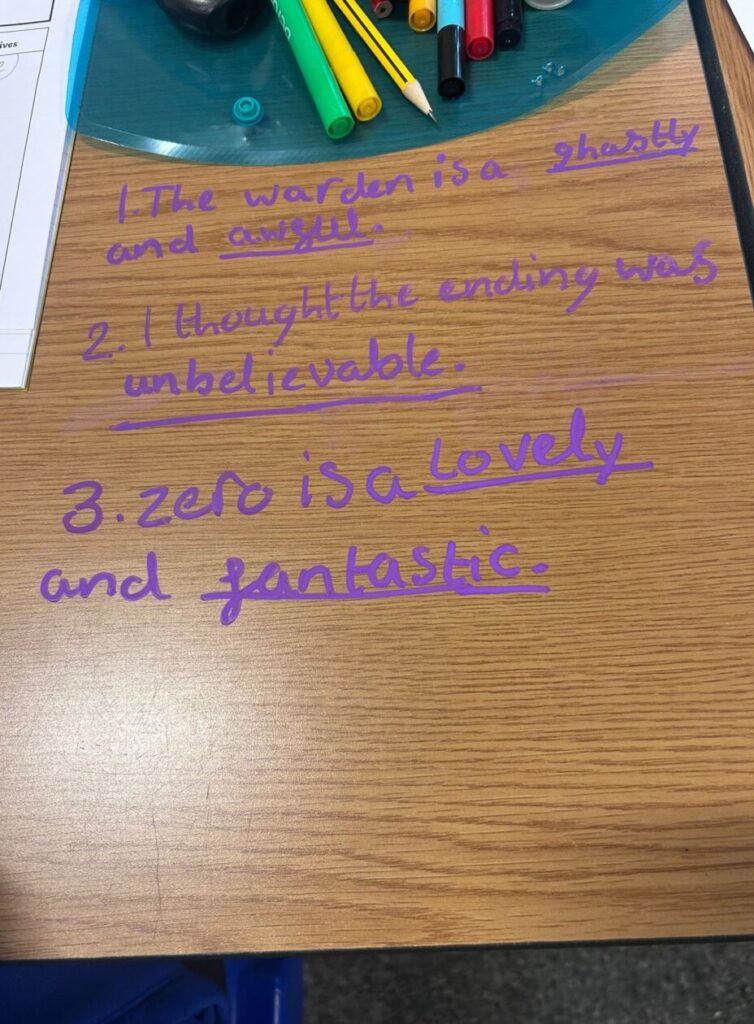 ives
1. The warden is a ghastly
and awful.
2. I thought the ending was
unbelievable.
3. zero is a lovely
and fantastic.